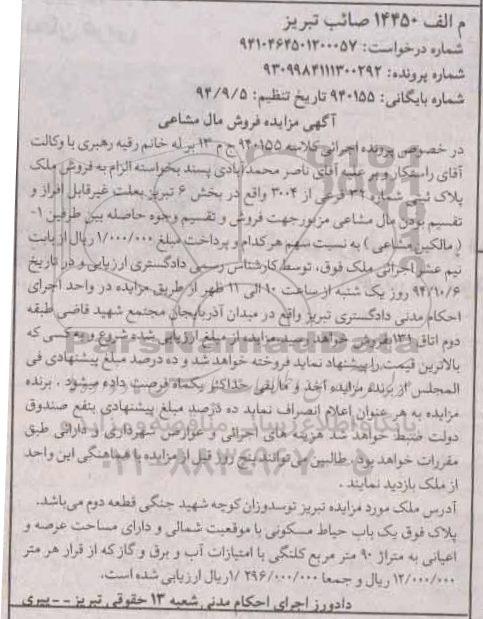 م الف ۱۴۴۵۰ صائب تبریز
شماره درخواست: ۹۴۱۰۴۶۴۵۰۱۲۰۰۰۵۷
شماره پرونده: ۹۳۰۹۹۸۴۱۱۱۳۰۰۲۹۲
شماره بایگانی: ۹۴۰۱۵۵ تاریخ تنظیم: ۹۴/۹/۵
آگهی مزایده فروش مال مشاعی
در خصوص پرونده اجرائی کلاسه ۹۴۰۱۵۵ ج م ۱۳ برله خانم رقیه رهبری با وکالت
آقای راستکار و بر علیه آقای ناصر محمدآبادی پسند بخواسته الزام به فروش ملک
پلاک ثبتی شماره ۳۹ فرعی از ۳۰۰۴ واقع در بخش ۶ تبریز بعلت غیرقابل افراز و
تقسیم بودن مال مشاعی مزبور جهت فروش و تقسیم وجوه حاصله بین طرفین ۱-
( مالکین مشاعی ) به نسبت سهم هر کدام و پرداخت مبلغ ۱/۰۰۰/۰۰۰ ریال از بابت
نیم عشر اجرائی ملک فوق، توسط کارشناس رسمی دادگستری ارزیابی و در تاریخ
۹۴/۱۰/۶ روز یک شنبه از ساعت ۱۰ الی ۱۱ ظهر از طریق مزایده در واحد اجرای
احکام مدنی دادگستری تبریز واقع در میدان آذربایجان مجتمع شهید قاضی طبقه
دوم اتاق ۱۳۱ بفروش خواهد رسید مزایده از مبلغ ارزیابی شده شروع و به کسی که
بالاترین قیمت را پیشنهاد نماید فروخته خواهد شد و ده درصد مبلغ پیشنهادی فی
المجلس از برنده مزایده اخذ و مابقی حداکثر یکماه فرصت داده میشود . برنده
مزایده به هر عنوان اعلام انصراف نماید ده درصد مبلغ پیشنهادی بنفع صندوق
دولت ضبط خواهد شد هزینه های اجرائی و عوارض شهرداری و دارائی طبق
مقررات خواهد بود. طالبین می توانند پنج روز قبل از مزایده با هماهنگی این واحد
از ملک بازدید نمایند .
آدرس ملک مورد مزایده تبریز توسدوزان کوچه شهید جنگی قطعه دوم می‌باشد.
پلاک فوق یک باب حیاط مسکونی با موقعیت شمالی و دارای مساحت عرصه و
اعیانی به متراژ ۹۰ متر مربع کلنگی با امتیازات آب و برق و گاز که از قرار هر متر
۱۲/۰۰۰/۰۰۰ ریال و جمعا ۱/۲۹۶/۰۰۰/۰۰۰ ریال ارزیابی شده است.
دادورز اجرای احکام مدنی شعبه ۱۳ حقوقی تبریز -- پیری